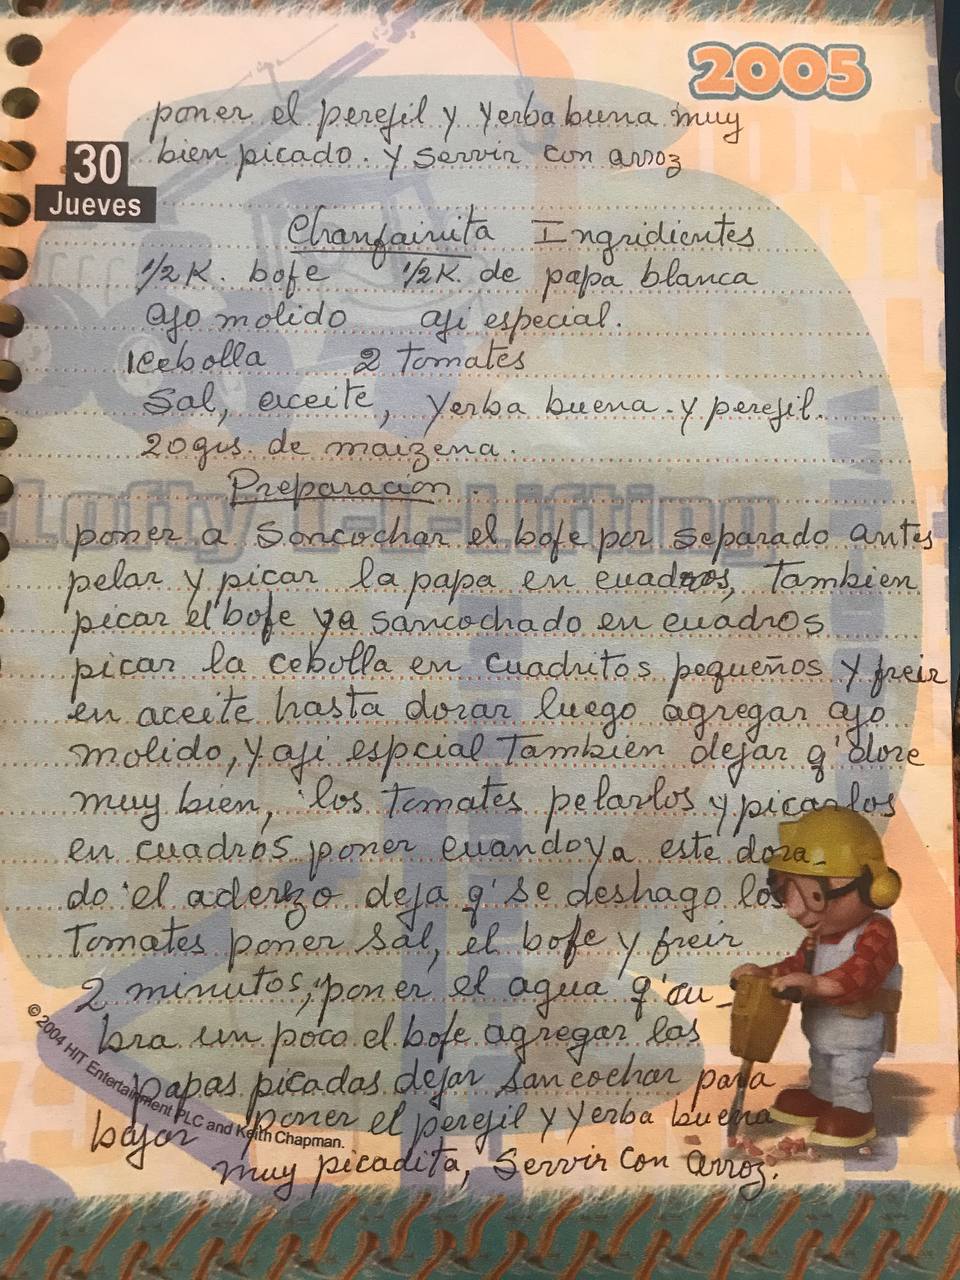 2005
poner el perejil y yerba buena muy
bien picado. y servir con arroz
30
Jueves
Chanfainita Ingridientes
1/2 K. bofe 1/2 K. de papa blanca
Ajo molido aji especial.
1 cebolla 2 tomates
Sal, aceite, yerba buena. y perejil.
20 grs. de maizena.
Preparación.
poner a Soncochar el bofe por separado antes
pelar y picar la papa en cuadros, Tambien
picar el bofe ya sancochado en cuadros
picar la cebolla en cuadritos pequeños y freir
en aceite hasta dorar luego agregar ajo
molido, y aji espcial Tambien dejar q' dore
muy bien, los tomates pelarlos y picarlos
en cuadros poner cuando ya esté dora-
do el aderezo deja q' se deshago los
Tomates poner Sal, el bofe y freir
2 minutos, poner el agua q' cu-
bra un poco el bofe agregar las
papas picadas dejar sancochar para
bajar poner el perejil y yerba buena
muy picadita, Servir con arroz.
© 2004 HIT Entertainment PLC and Keith Chapman.